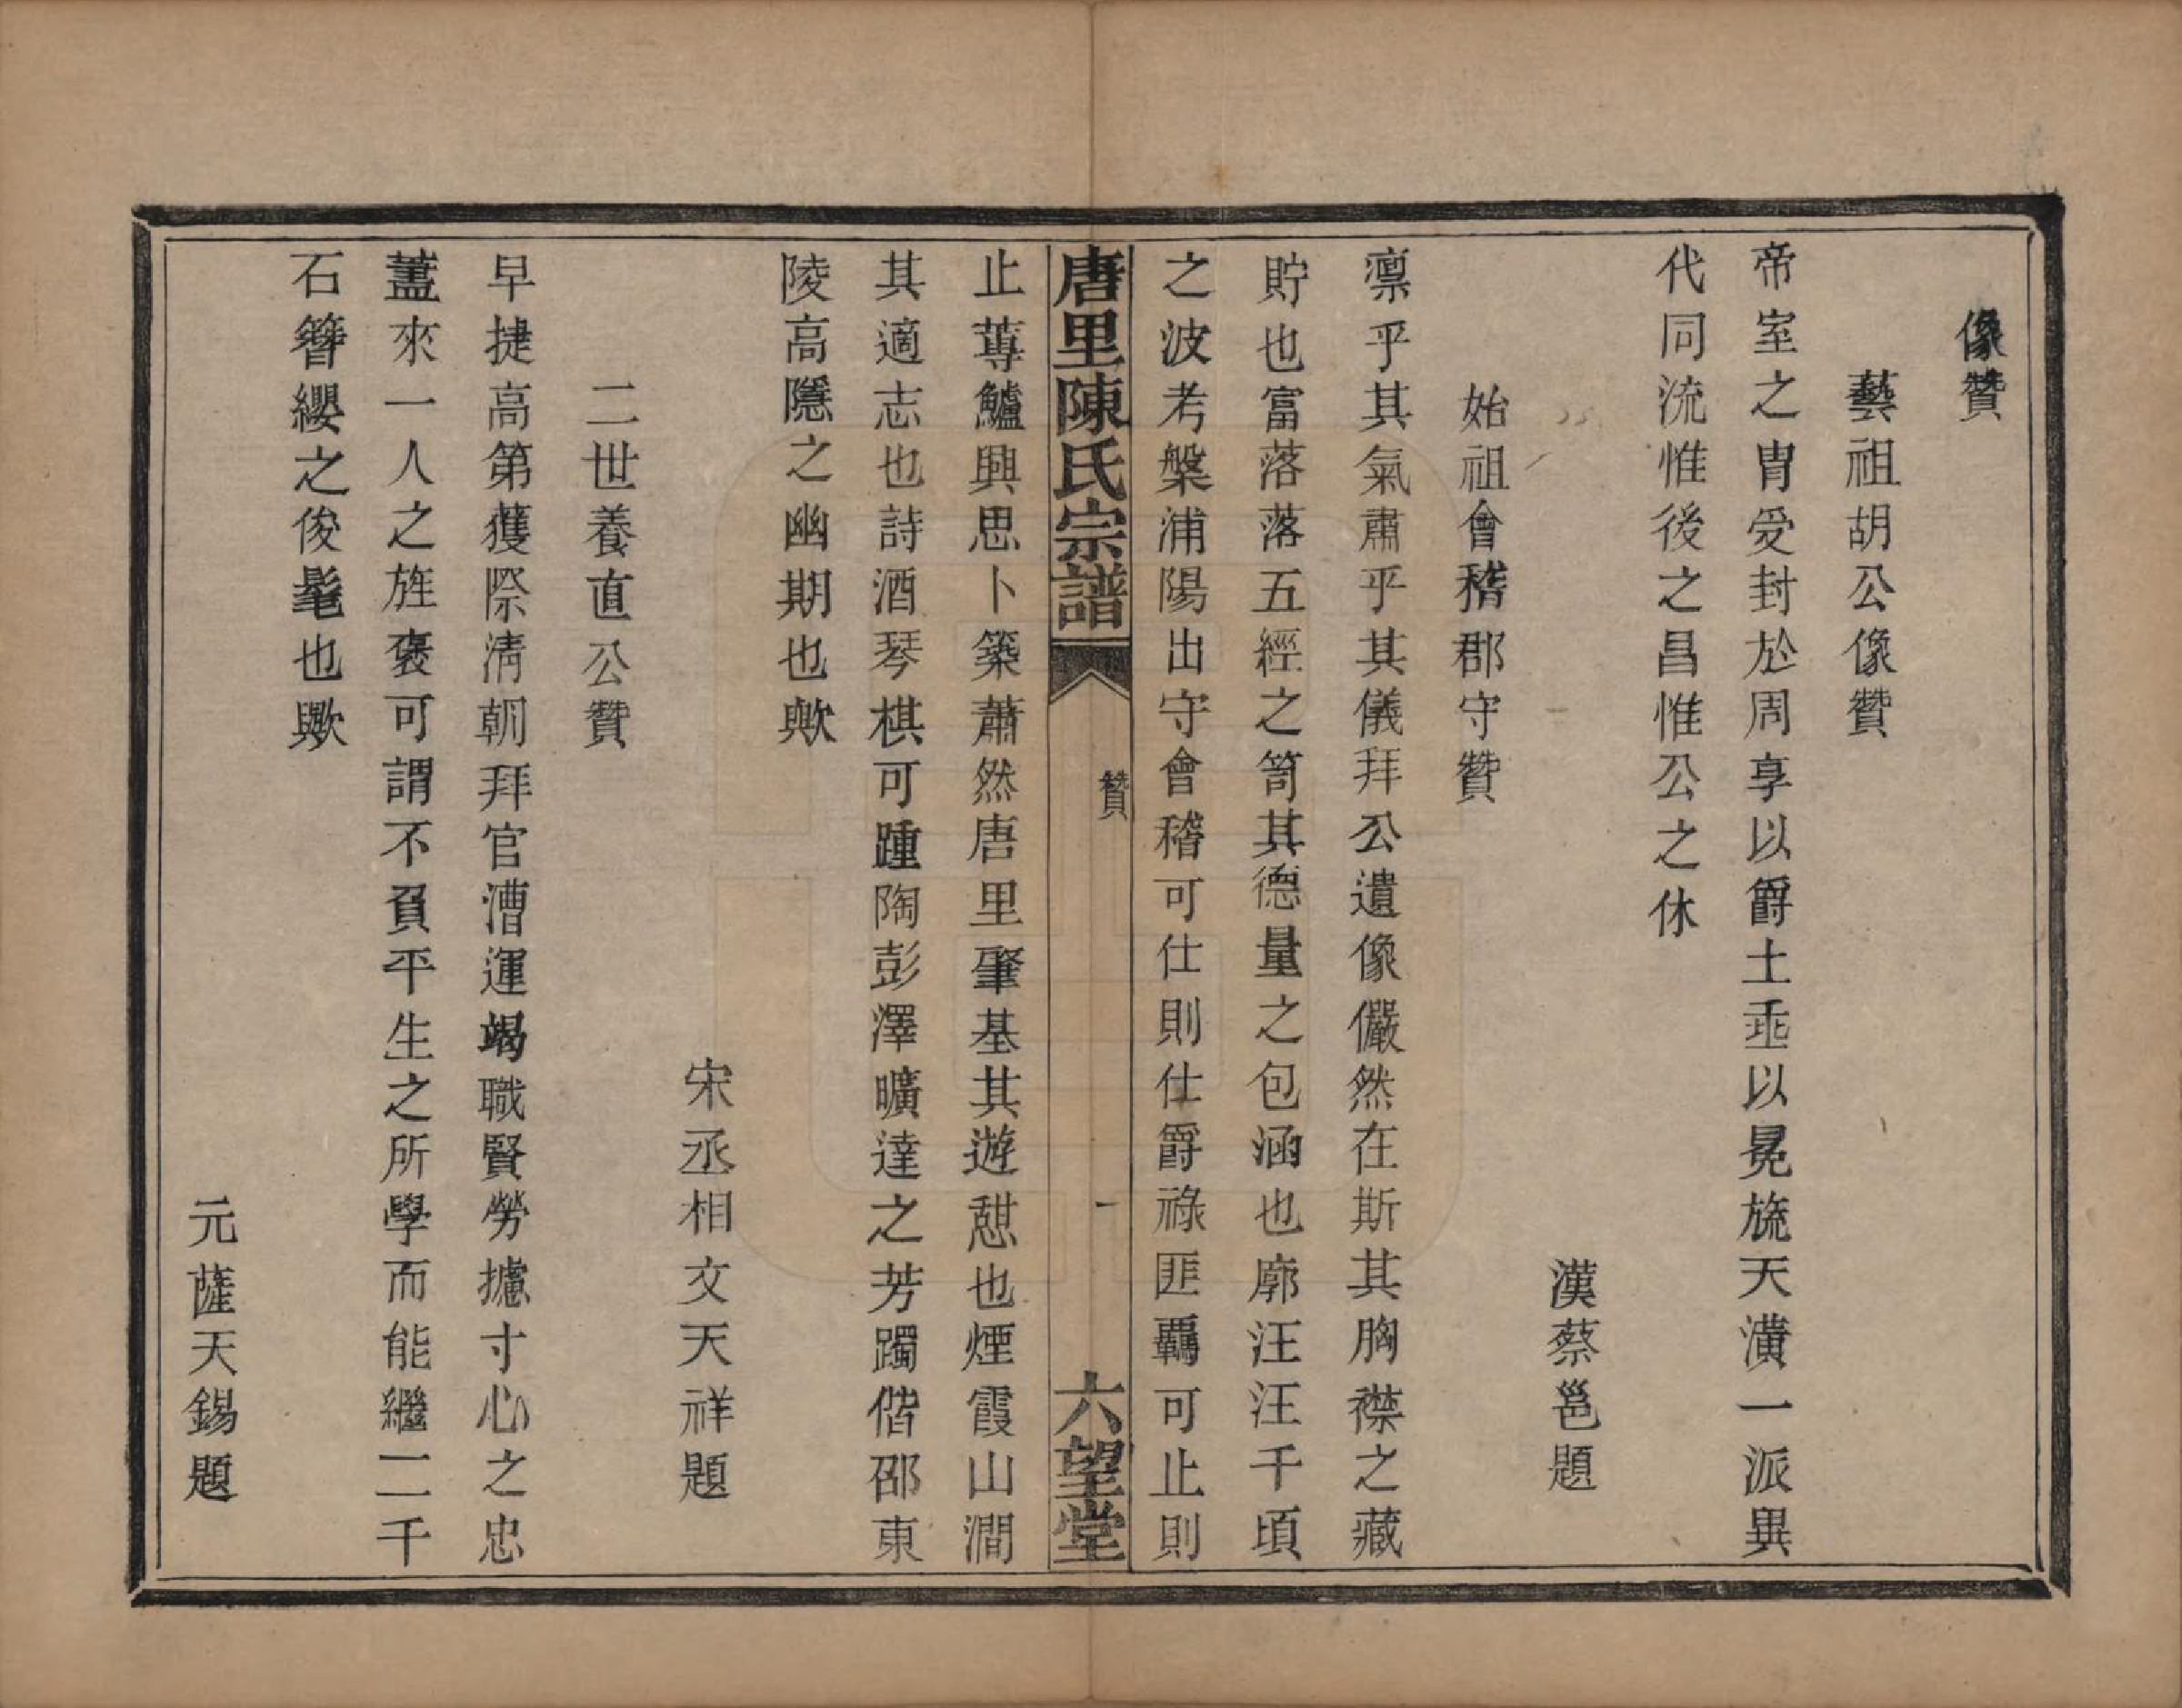 像贊
藝祖胡公像贊
帝室之胄受封於周享以爵土垂以冕旒天潢一派異
代同流惟後之昌惟公之休
漢蔡邕題
始祖會稽郡守贊
凛乎其氣肅乎其儀拜公遺像儼然在斯其胸襟之藏
貯也富落落五經之笥其德量之包涵也廓汪汪千頃
之波考槃浦陽出守會稽可仕則仕爵祿匪覊可止則
唐里陳氏宗譜
贊
一
六望堂
止蓴鱸興思卜築蕭然唐里肇基其遊憇也煙霞山澗
其適志也詩酒琴棋可踵陶彭澤曠達之芳躅偕邵東
陵高隱之幽期也歟
宋丞相文天祥題
二世養直公贊
早捷高第獲際清朝拜官漕運竭職賢勞攄寸心之忠
藎來一人之旌褒可謂不負平生之所學而能繼二千
石簪纓之俊髦也歟
元薩天錫題